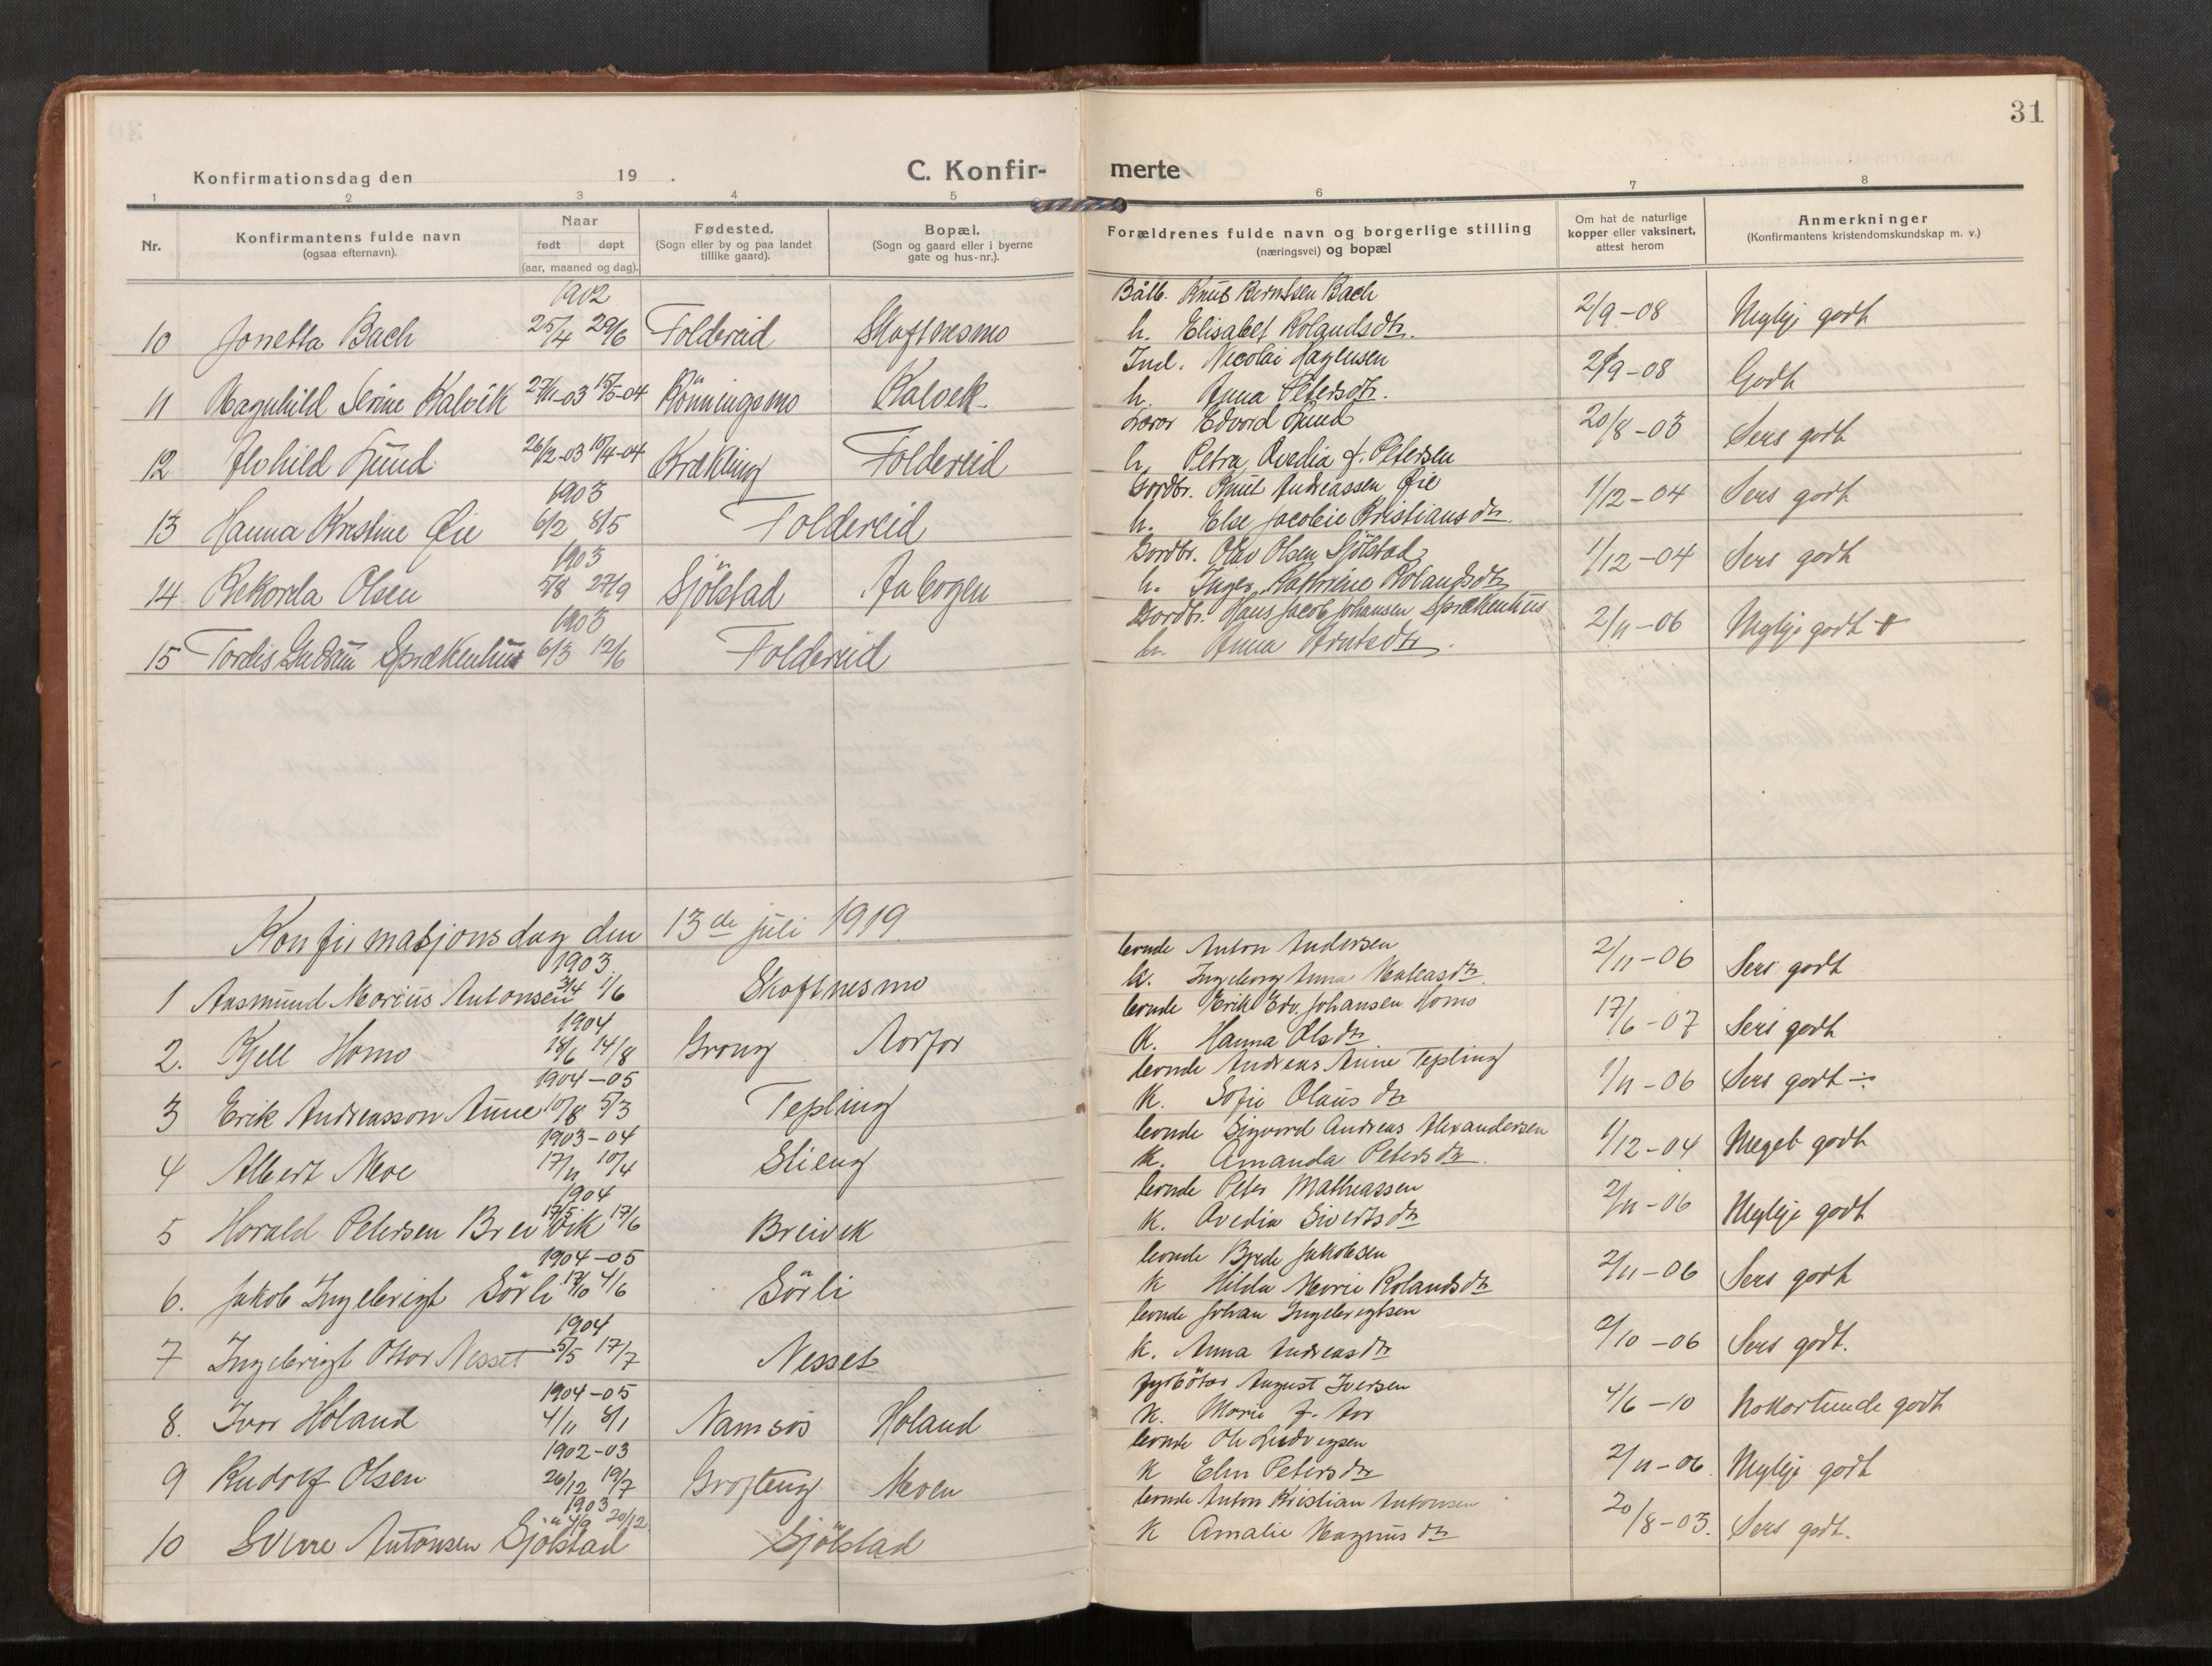 31
Konfirmationsdag den 19 .
C. Konfir-
merte
1 2 3 4 5 6 7 8
Nr.
Konfirmantens fulde navn
(ogsaa efternavn).
Naar
født døpt
(aar, maaned og dag).
Fødested.
(Sogn eller by og paa landet
tillike gaard).
Bopæl.
(Sogn og gaard eller i byerne
gate og hus-nr.).
Forældrenes fulde navn og borgerlige stilling
(næringsvei) og bopæl
Om hat de naturlige
kopper eller vaksinert,
attest herom
Anmerkninger
(Konfirmantens kristendomskundskap m. v.)
1902
Knut Berntsen Bach
10 Jonetta Bach 25/4 29/6 Foldereid Skaftnesmo h. Elisabet Rolandsdtr. 2/9-08 Mykje godt
Ind. Nicolai Hagensen
11 Magnhild Serine Kalvik 27/11-03 15/5-04 Rönningsmo Kalvik h. Anna Petersdtr. 2/9-08 Godt
Lærar Edvard Lund
12 Lund 26/2-03 10/4-04 Krækling Foldereid h. Petra Ovedia f. Petersen 20/8-03 Sers godt
1903
Gardbr. Knut Andreassen Øie
13 Hanna Kristine Øie 6/2 8/5 Foldereid h. Else Jacobie Kristiansdtr. 1/12-04 Sers godt
1903
Gardbr. Olav Olsen Sjölstad
14 Rekorda Olsen 5/8 27/9 Sjölstad h. Inger Kathrine Rolandsdtr 1/12-04 Sers godt
1903
Gardbr. Hans Jacob Johansen Sprækenhus
15 Tordis Sprækenhus 6/3 12/6 Foldereid h. Anna Arntsdtr. 2/11-06 Myklje godt +
Konfirmasjonsdag den 13de juli 1919
1903
bonde Anton Andersen
1 Aasmund Marius Antonsen 3/4 1/6 Skaftnesmo k. Ingeborg Anna dtr. 2/11-06 Sers godt
1904
bonde Erik Edv. Johansen Homo
2. Kjell Homo 18/6 14/8 Grong Aarfor K. Hanna Olsdtr 17/6-07 Sers godt
1904-05
bonde Andreas Aune Tepling
3 Erik Andreasson Aune 10/8 5/3 Tepling K. Sofie Olausdtr 1/11-06 Sers godt ÷
1903-04
bonde Sigvard Andreas Alexandersen
4 Albert Moe 17/11 10/4 Slieng K. Amanda Petersdtr. 1/12-04 Meget godt
1904
bonde Peter Mathiassen
5 Harald Petersen Breivik 17/5 17/6 Breivik K. Ovedia Sivertsdtr 2/11-06 Myklje godt
1904-05
bonde Brede Jakobsen
6. Jakob Ingebrigt Sörli 17/10 4/6 Sörli K Hilda Marie Rolandsdtr 2/11-06 Sers godt
1904
bonde Johan Ingebrigtsen
7 Ingebrigt Ottar Nesset 5/5 17/7 Nesset K. Anna Andreasdtr 2/10-06 Sers godt.
1904-05
fyrbötar August Iversen
8. Ivar Höland 4/11 8/1 Namsos Höland K. Marie f. 4/6-10 Nokorlunde godt
1902-03
bonde Ole Ludvigsen
9 Rudolf Olsen 26/12 19/7 Moen K Elen Petersdtr 2/11-06 Myklje godt
1903
bonde Anton Kristian Antonsen
10 Sverre Antonsen Sjölstad 4/9 20/12 Sjölstad K Amalie Magnusdtr 20/8-03. Sers godt.